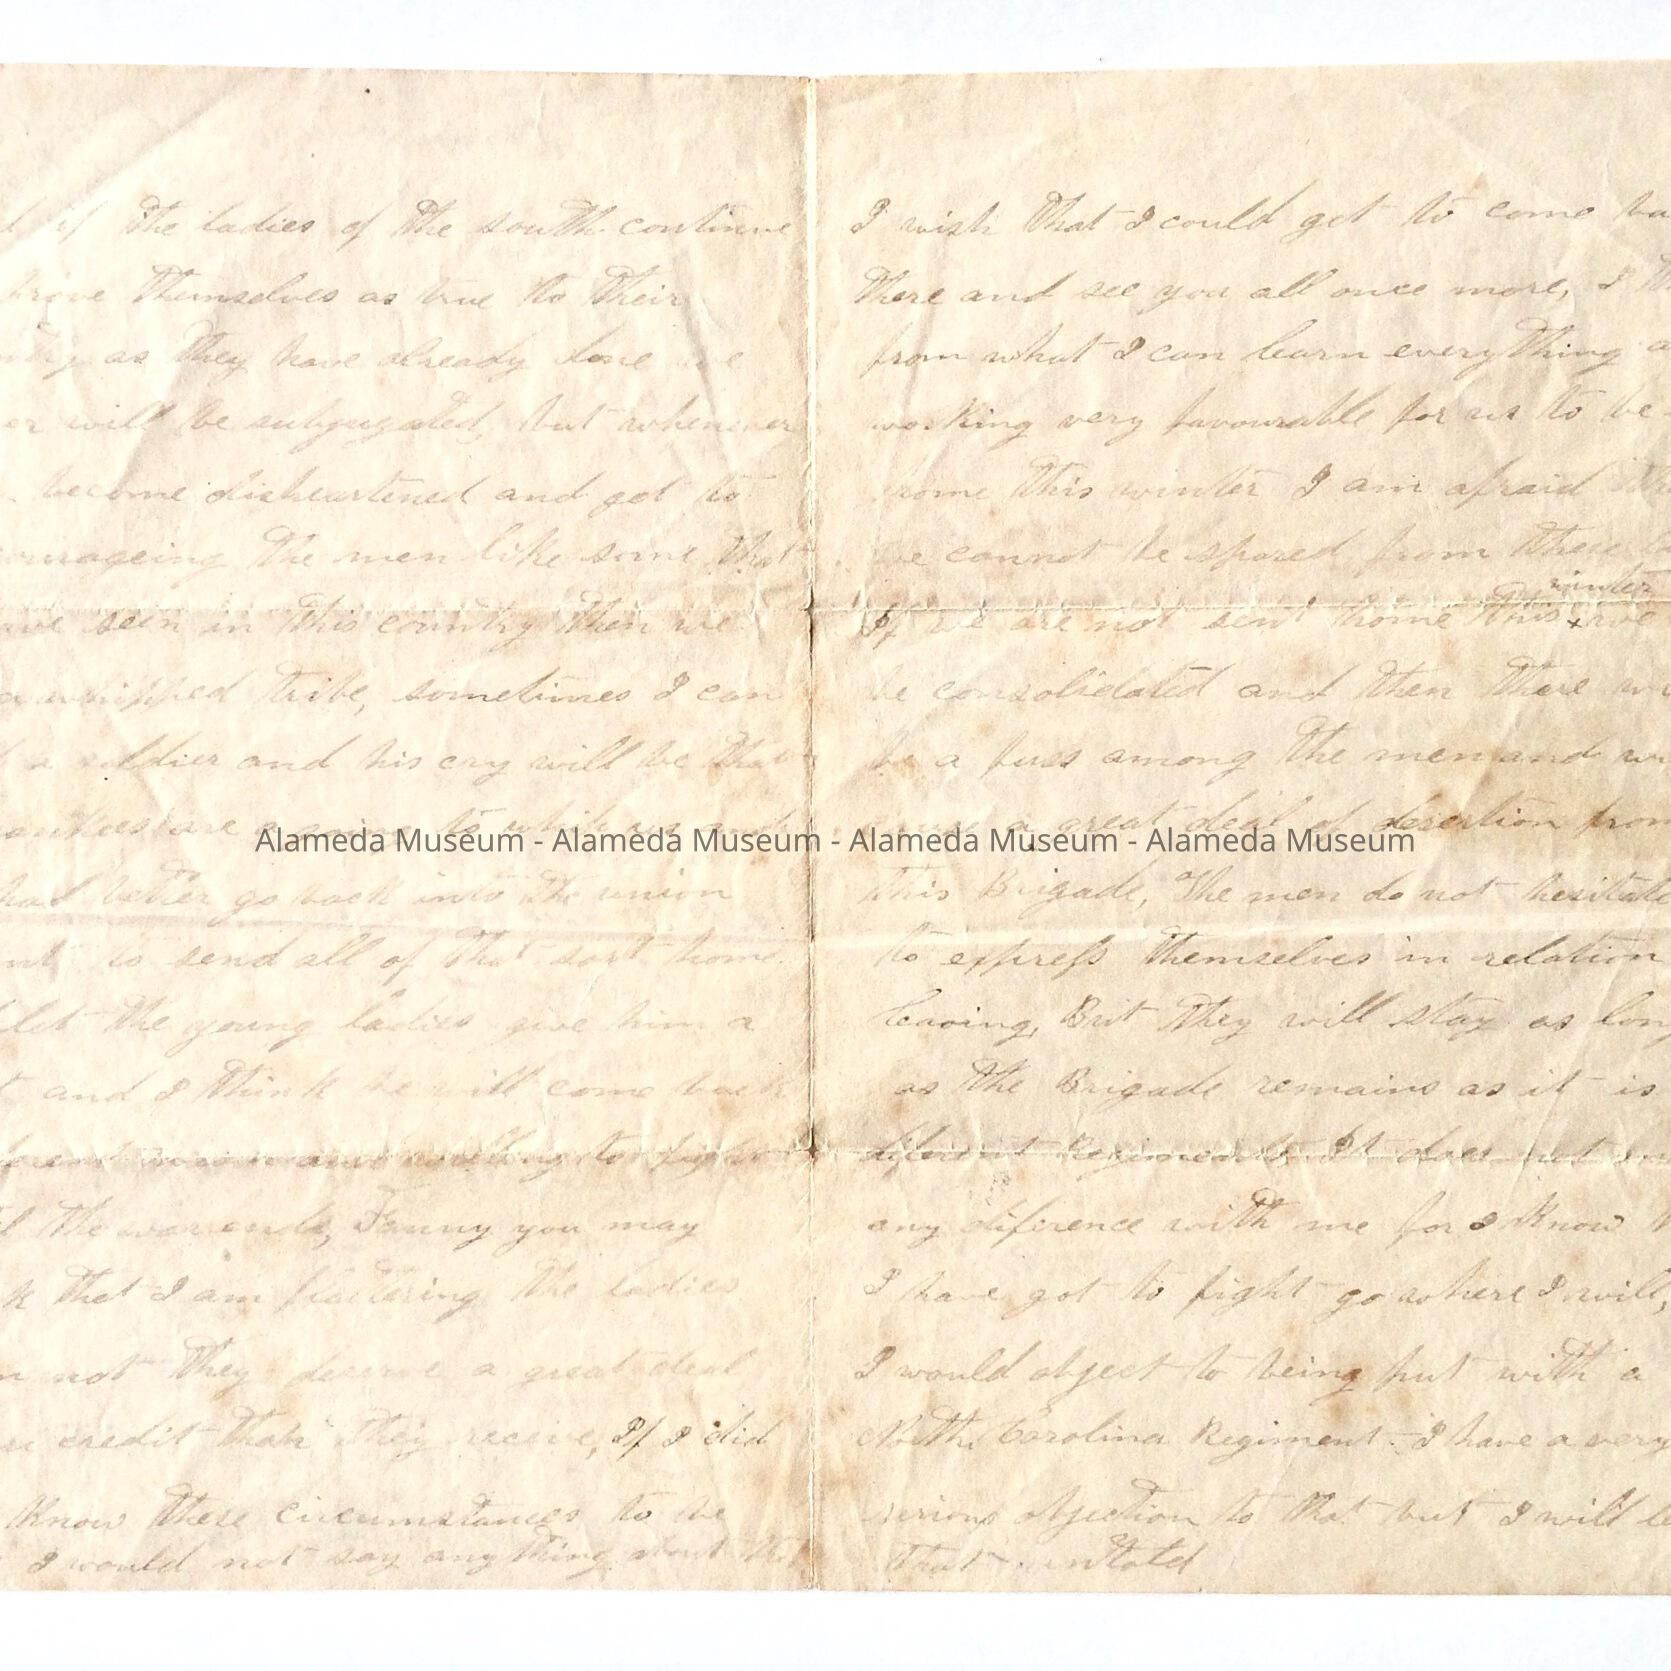 if the ladies of the south continue
prove themselves as true to their
as they have already done we
will be subjugated, but whenever
become disheartened and get to
the men like some that
seen in this country then we
whipped tribe, sometimes I can
a soldier and his cry will be that
are
had better go back into the union
to send all of that sort home.
let the young ladies give him a
and I think he will come back
willing to fight
the war ends, Fanny you may
that I am flattering the ladies
not they deserve a great deal
credit than they receive, If I did
know these circumstances to be
I would not say anything about
I wish that I could get to come
there and see you all once more, I
from what I can learn everything
working very favourable for us to be
home this winter I am afraid
we cannot be spared from these
winter
If we are not sent home this x we
be consolidated and then there
be a fuss among the men and
a great deal of desertion from
this Brigade, The men do not hesitate
to express themselves in relation
leaving, But they will stay as long
as the Brigade remains as it is
diferent Regiments It does not
any diference with me for I know
I have got to fight go where I will,
I would object to being put with a
North Carolina Regiment. I have a very
serious objection to that but I will
that untold
Alameda Museum - Alameda Museum - Alameda Museum - Alameda Museum